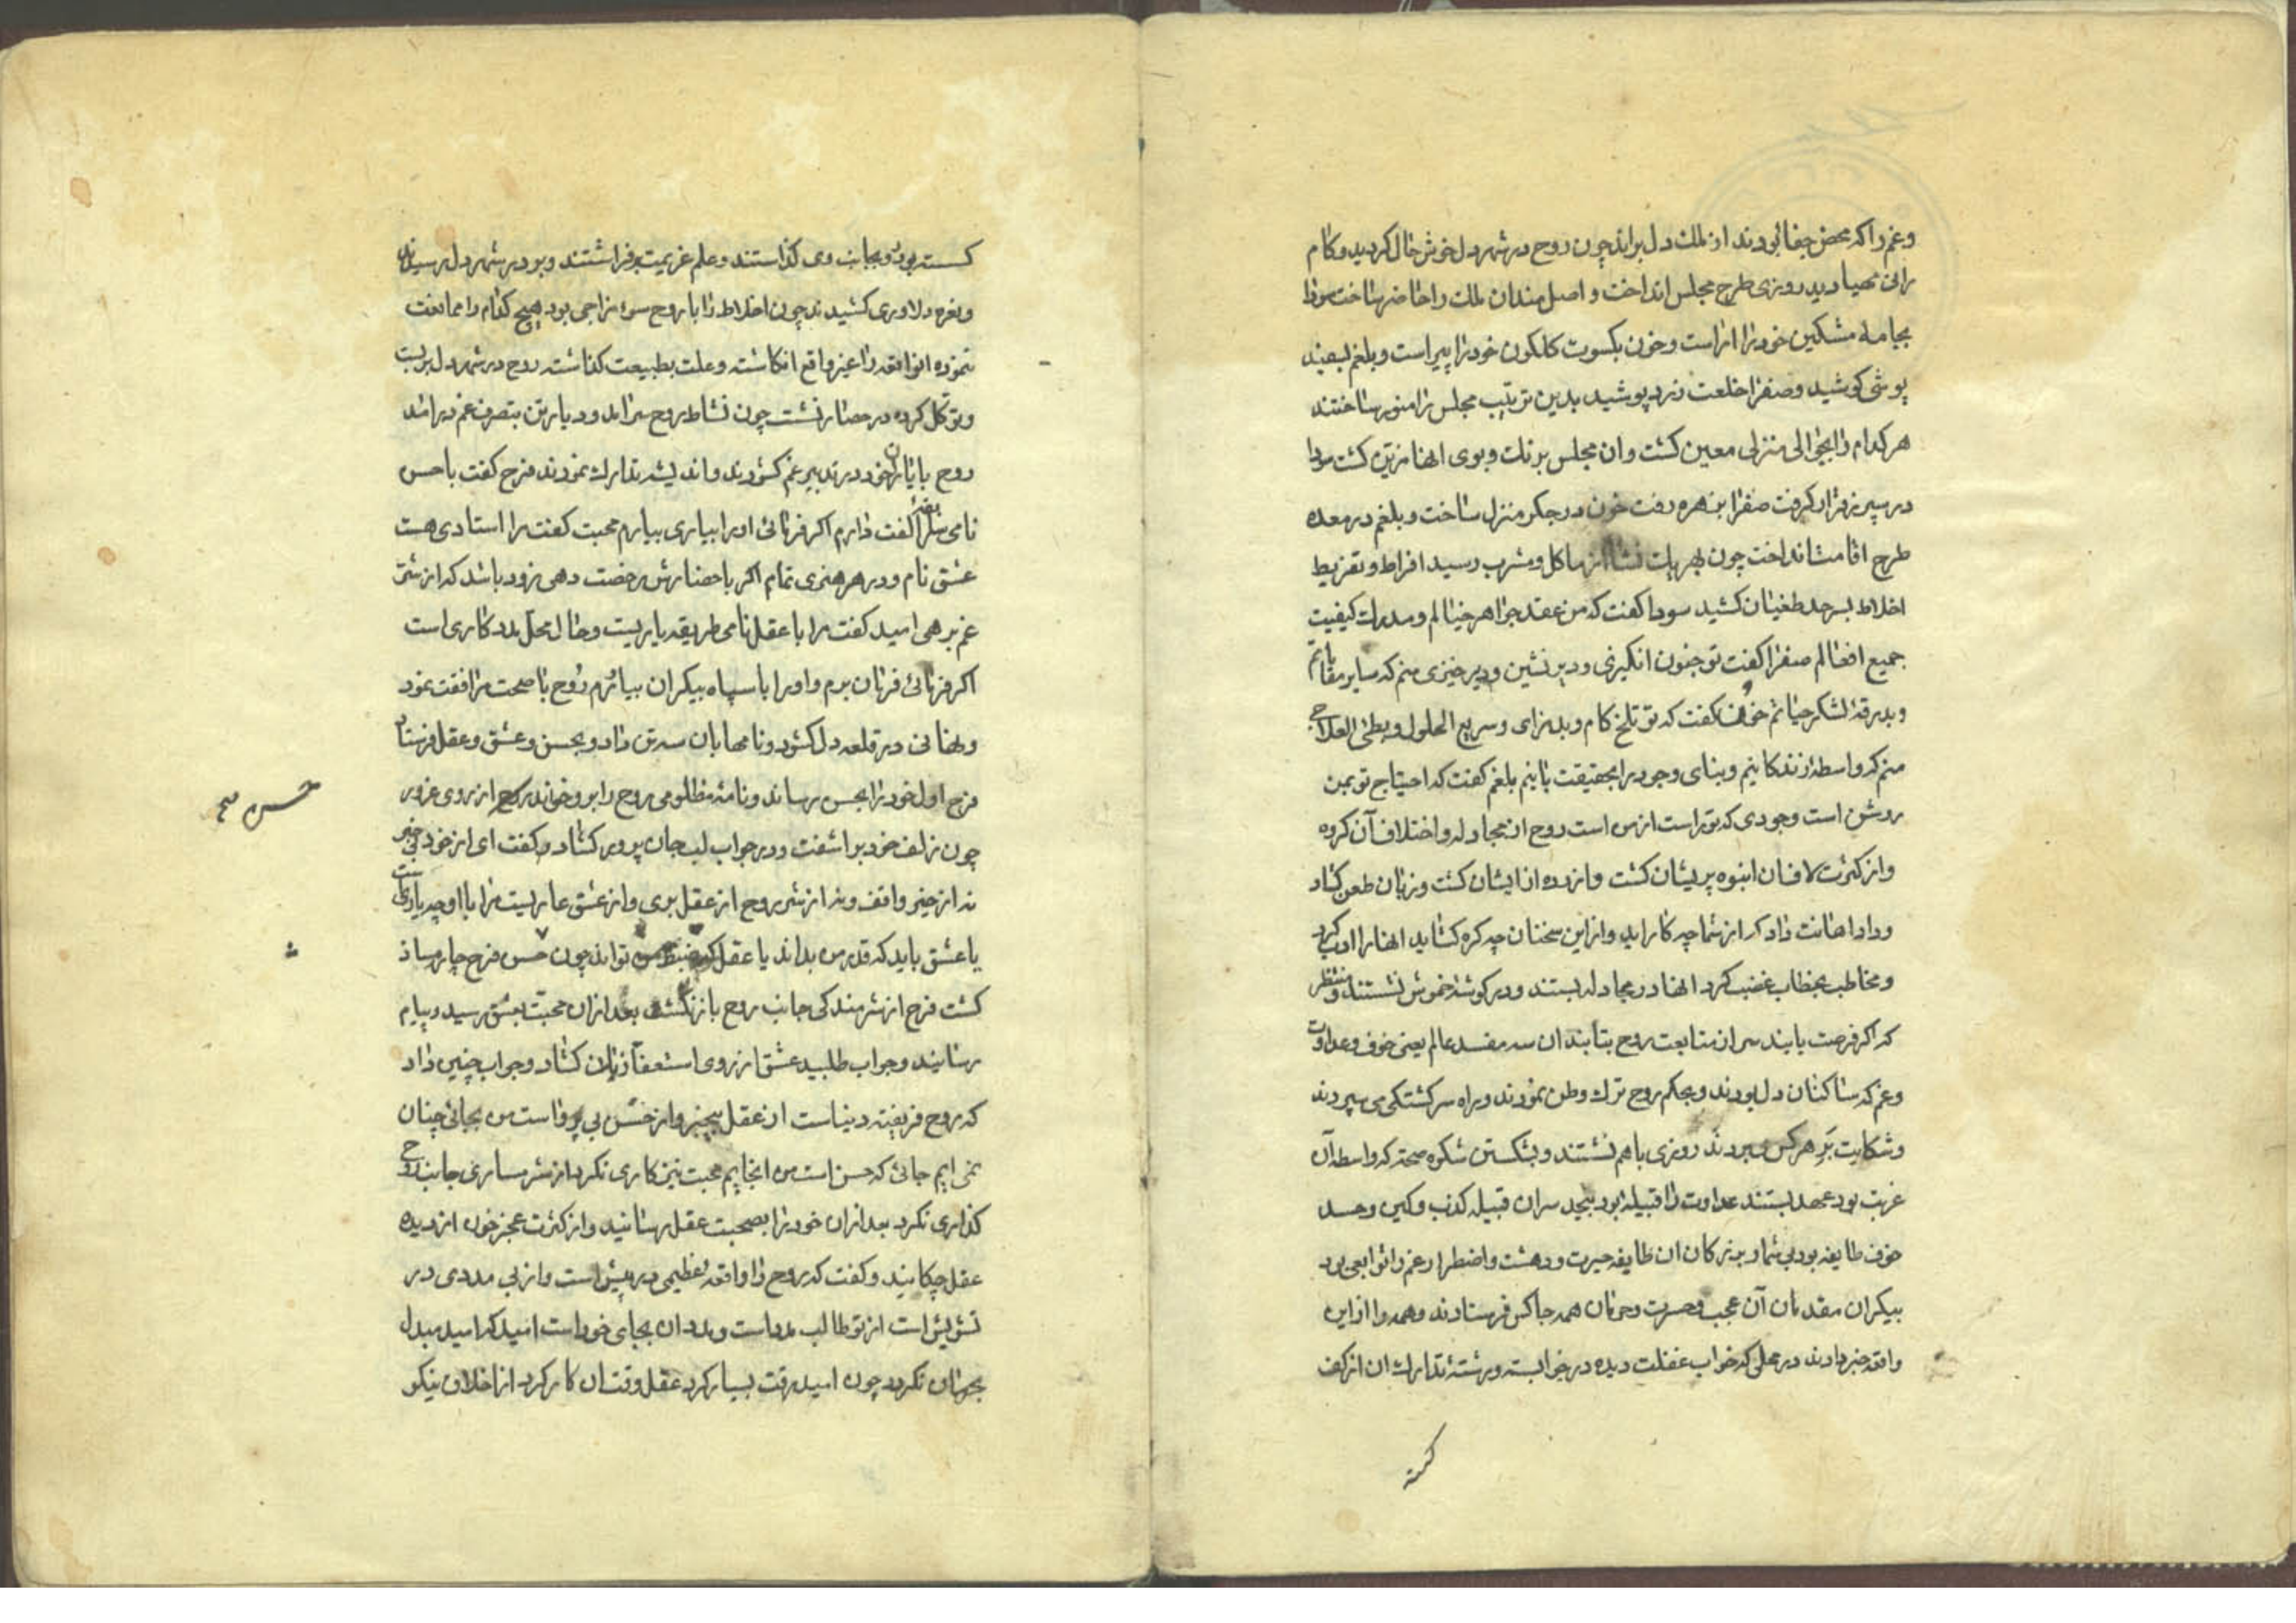 وغم را که محض جفا بودند از ملک دل براند چون روح در شهر دل خوش حال کردید و کام
رانی مهیا دید روزی طرح مجلس انداخت و اصل مندان ملک را حاضر ساخت سودا
بجامه مشکین خود را اراست و خون بکسوت کلکون خود را پیراست و بلغم بسفید
پوشی کوشید و صفرا خلعت زرد پوشید بدین ترتیب مجلس را منور ساختند
هر کدام را بجائی منزلی معین کشت و ان مجلس برنک و بوی انها مزین کشت سودا
در سپرز قرار کرفت صفرا بزهره رفت خون در جکر منزل ساخت و بلغم در معده
طرح اقامت انداخت چون بهریک نشا از ماکل و مشرب رسید افراط و تفریط
اخلاط بسرحد طغیان کشید سودا کفت که من عقد جواهر خیالم و مدرک کیفیت
جمیع افعالم صفرا کفت تو جنون انکیزی و دیر نشین و دیر خیزی منم که سایر مقاماتم
و بدرقه لشکر حیاتم خون کفت که تو تلخ کام و بدرای و سریع الحلول و بطئ العلاجی
منم که واسطه زندکانیم و بنای وجود را بحقیقت بانیم بلغم کفت که احتیاج تو بمن
روشن است وجودی که تراست از من است روح از مجادله و اختلاف آن کروه
و از کثرت لافان انبوه پریشان کشت و ازرده از ایشان کشت و زبان طعن کشاد
و داد اهانت داد که از شما چه کار اید و از این سخنان چه کره کشاید انها را ادب کرد
و مخاطب بخطاب غضب کرد انها در مجادله بستند و در کوشه خموش نشستند و منتظر
که اکر فرصت یابند سر از متابعت روح بتابند ان سه مفسد عالم یعنی خوف و عداوت
و غم که ساکنان دل بودند و بحکم روح ترک وطن نمودند و براه سرکشتکی می سپردند
و شکایت بر هر کس می بردند روزی باهم نشستند و بشکستن شکوه صحت که واسطه آن
غربت بود عهد بستند عداوت را قبیله بود بیحد سران قبیله کذب و کین و حسد
خوف طایفه بود بی شمار بزرکان ان طایفه حیرت و دهشت و اضطرار غم را توابعی بود
بیکران مقدمان آن عجب و حسرت و حرمان همه جا کس فرستادند و همه را از این
واقعه خبر دادند در محلی که خواب غفلت دیده در خوابسته و رشته تدارک ان از کف
کسته
کسسته بود بجانب وی کذاستند و علم عزیمت برفراشتند و بو در شهر دل رسیدند
و نعره دلاوری کشیدند چون اخلاط را با روح سوء مزاجی بود هیچ کدام را ممانعت
ننموده ان واقعه را غیر واقع انکاشته و علت بطبیعت کذاشته روح در شهر دل بربست
و توکل کرده در حصار نشست چون نشاط روح سراند و دیار تن بتصرف غم درامد
روح با یاران خود در تدبیر غم کشودند و اندیشه تدارک نمودند فرح کفت با حسن
نامی کفت دارم اکر فرمائی او را بیاری بیارم محبت کفت مرا استادی هست
عشق نام و در هر هنری تمام اکر باحضارش رخصت دهی زود باشد که از شر
غم برهی امید کفت مرا با عقل نامی طریقه یاریست و حال محل مدد کاری است
اکر فرمائی فرمان برم و او را با سپاه بیکران بیاورم روح با صحت مرافقت نمود
و نهانی در قلعه دل کشود و نامها بان سه تن داد و بحسن و عشق و عقل فرستاد
فرح اول خود را بحسن رساند و نامه مظلومی روح را برو خواند از روی غرور
چون زلف خود براشفت و در جواب لب جان پرور کشاد و کفت ای از خود بی خبر
نه از خیر واقف و نه از شر روح از عقل بری و از عشق عاریست مرا با او چه یاریست
یا عشق باید که قدر من بداند یا عقل که ضبط من تواند چون حسن فرح چاره ساز
کشت فرح از شرمندکی جانب روح باز نکشت بعد از ان محبت بعشق رسید و پیام
رسانید و جواب طلبید عشق از روی استعفا زبان کشاد و جواب چنین داد
که روح فریفته دنیاست از عقل بیخبر و از حسن بی پرواست من بجائی چنان
نمی ایم جائی که حسن است من انجایم محبت نیز کاری نکرد از شرمساری جانب روح
کذاری نکرد بعد از ان خود را بصحبت عقل رسانید و از کثرت عجز خون از دیده
عقل چکانید و کفت که روح را واقعه عظیمی در پیش است و از بی مددی در
تشویش است از تو طالب مدد است و مدد ان بجای خود است امید که امید مبدل
بحرمان نکردد چون امید رقت بسیار کرد عقل وقت ان کار کرد از اخلاق نیکو
حسن